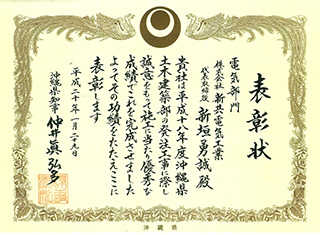 表彰状
電気部門
株式会社 新共電気工業
代表取締役 新垣勇誠殿
貴社は平成十八年度沖縄県
土木建築部の発注工事に際し
誠意をもって施工に当たり優秀な
成績でこれを完成させました
よってその功績をたたえここに
表彰します
平成二十年一月二十九日
沖縄県知事 仲井眞弘多
沖縄県